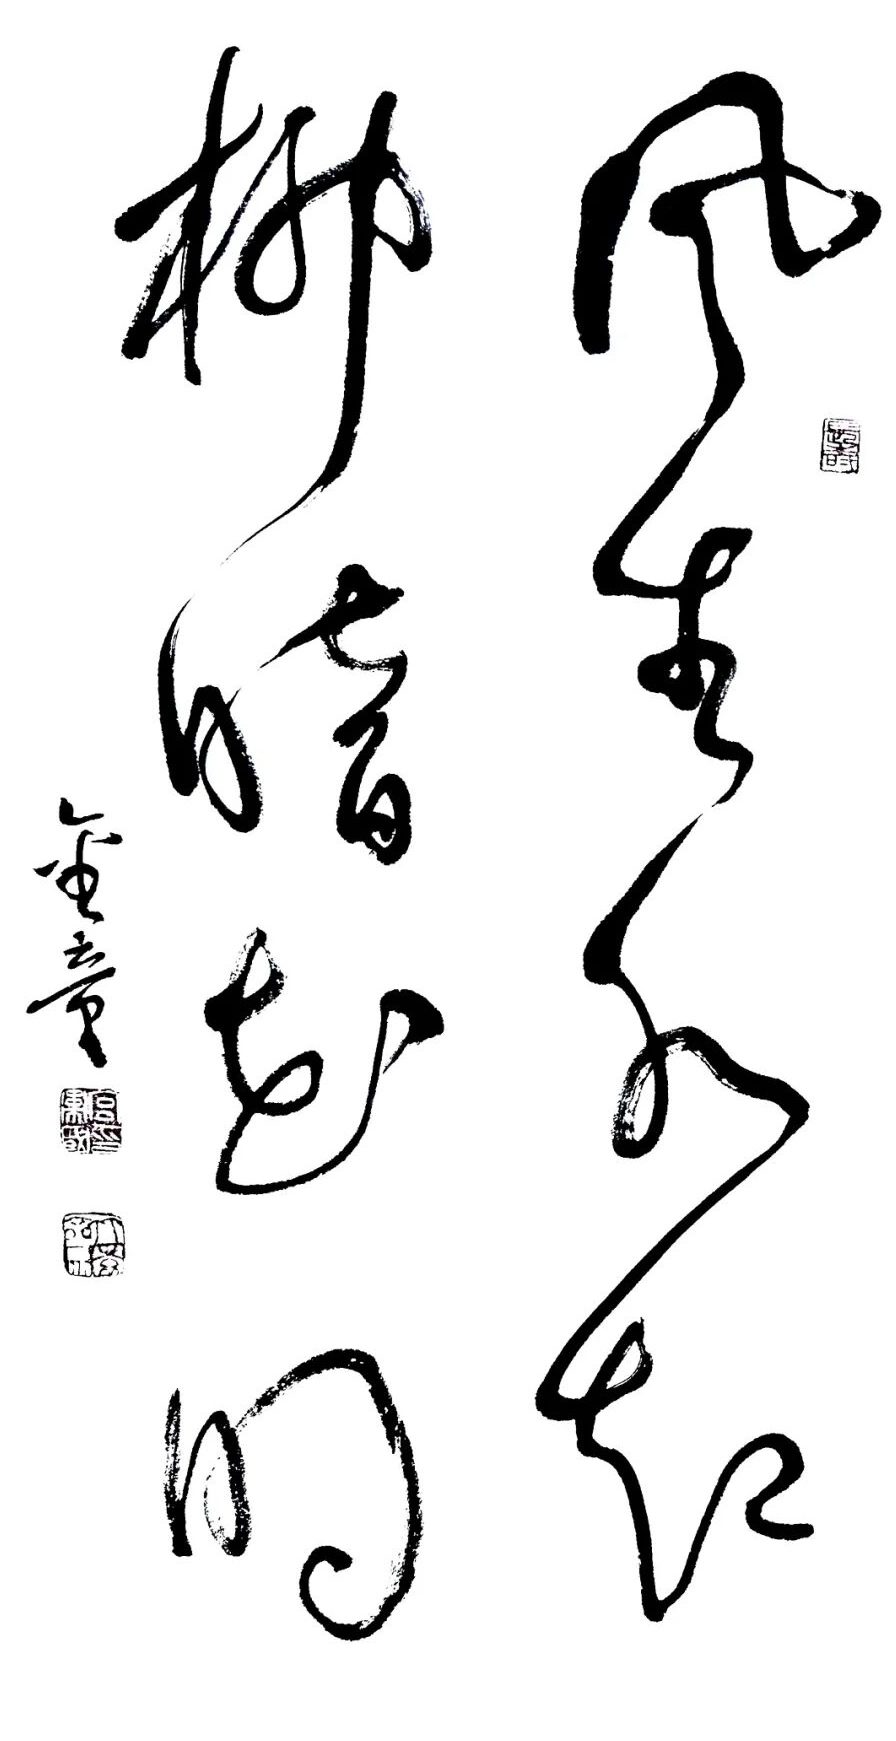 风生水起
柳暗花明